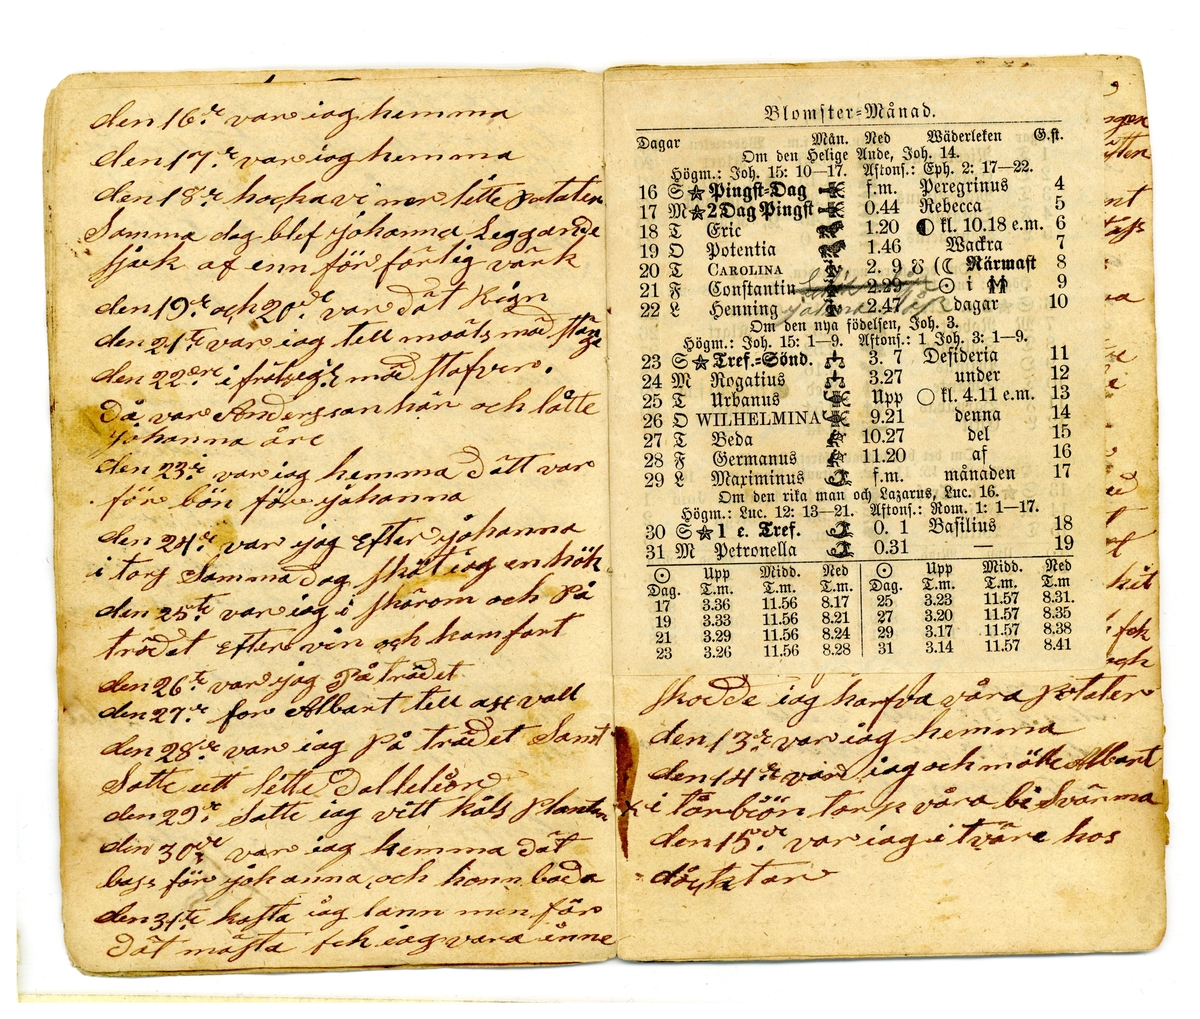 den 16de var iag hemma
den 17de var iag hemma
den 18de vi ner lite potater
Samma dag blef johanna Leggande
sjuk af enn för förlig värk
den 19de och 20de var dät Rign
den 21te var iag tell
den 22dre i
då var Andersson här och låtte
johanna åre
den 23de var iag hemma dått var
för bön för johanna
den 24de var ijag Efter johanna
i torp Samma dag sköt iag en hök
den 25te var iag i skärom och På
trädet Efter vin och kamfort
den 26te var jag På trädet
den 27de for Albart tell
den 28de var iag På trädet Samt
Satte ett litte
den 29de Satte iag vitt kåls plantor
den 30de var iag hemma dåt
bars för johanna och honn
den 31te iag lann men för
Dåt måsta iag vara inne
Blomster-Månad.
Dagar Mån. Ned Wäderleken G.st.
Om den Helige Ande, Joh. 14.
Högm.: Joh. 15: 10—17. Aftons.: Eph. 2: 17—22.
16 S Pingst-Dag f.m. Peregrinus 4
17 M 2 Dag Pingst 0.44 Rebecca 5
18 T Eric 1.20 kl. 10.18 e.m. 6
19 O Potentia 1.46 Wackra 7
20 T CAROLINA 2. 9 Närmast 8
21 F Constantin 2.29 ☉ i 9
22 L Henning 2.47 dagar 10
Om den nya födelsen, Joh. 3.
Högm.: Joh. 15: 1—9. Aftons.: 1 Joh. 3: 1—9.
23 S Tref.-Sönd. 3. 7 Desideria 11
24 M Rogatius 3.27 under 12
25 T Urbanus Upp ○ kl. 4.11 e.m. 13
26 O WILHELMINA 9.21 denna 14
27 T Beda 10.27 del 15
28 F Germanus 11.20 af 16
29 L Maximinus f.m. månaden 17
Om den rika man och Lazarus, Luc. 16.
Högm.: Luc. 12: 13—21. Aftons.: Rom. 1: 1—17.
30 S 1 e. Tref. 0. 1 Basilius 18
31 M Petronella 0.31 — 19
☉ Upp Midd. Ned ☉ Upp Midd. Ned
Dag. T.m. T.m. T.m. Dag. T.m. T.m. T.m
17 3.36 11.56 8.17 25 3.23 11.57 8.31.
19 3.33 11.56 8.21 27 3.20 11.57 8.35
21 3.29 11.56 8.24 29 3.17 11.57 8.38
23 3.26 11.56 8.28 31 3.14 11.57 8.41
skodde iag harfva våra potater
den 13de var iag hemma
den 14de var iag och mötte Albart
i torbiön torp våra bi Svärma
den 15de var iag i tväre hos